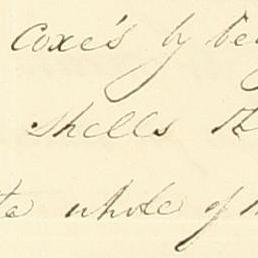 Coxe's by be
shells th
te whole of